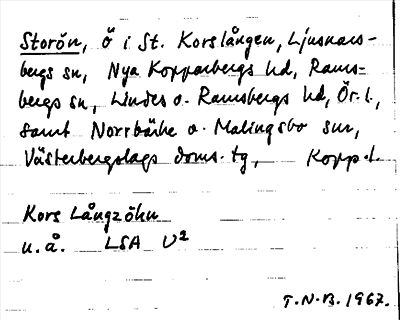 Storön, ö i St. Korslången, Ljusnars-
bergs sn, Nya Kopparbergs hd, Rams-
bergs sn, Lindes o. Ramsbergs hd, Ör. l.,
samt Norrbärke o. Malingsbo snr,
Västerbergslags doms. tg, Kopp. l.
Kors Långzöhn
u.å. LSA U²
T.N.B. 1967.